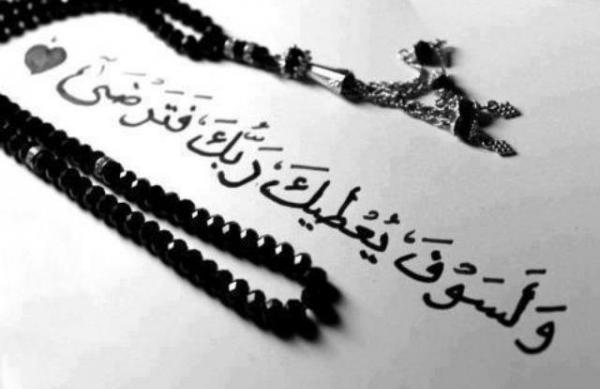 وَلَسَوْفَ يُعْطِيكَ رَبُّكَ فَتَرْضَىٰٓ